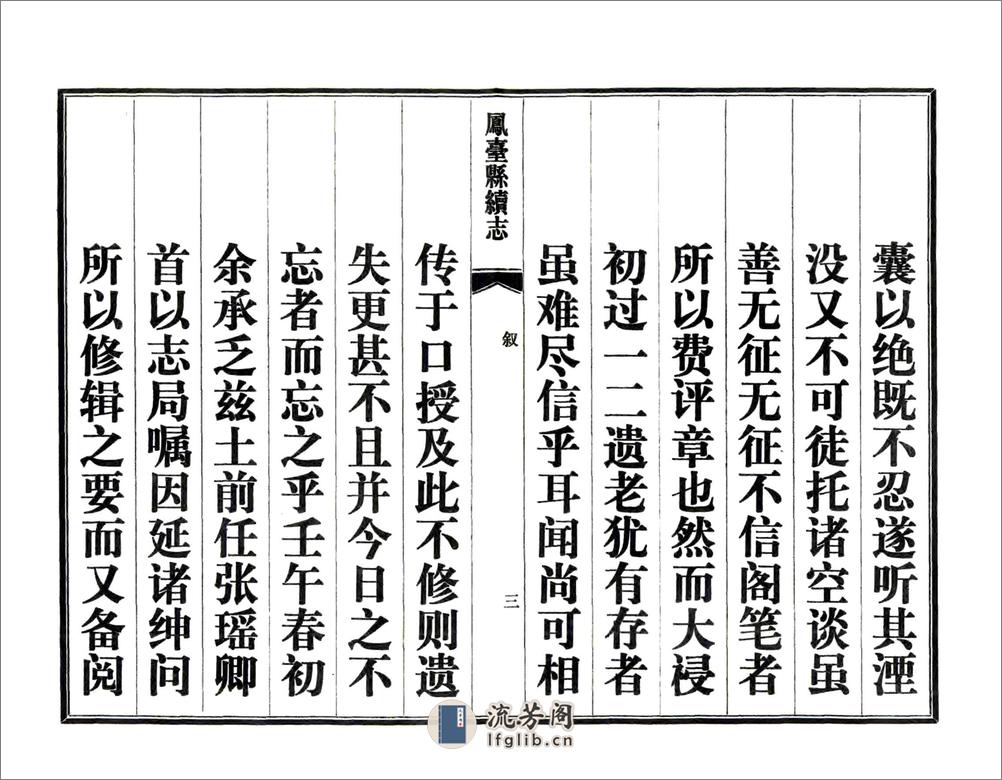 囊以绝既不忍遂听其湮
没又不可徒托诸空谈虽
善无征无征不信阁笔者
所以费评章也然而大祲
初过一二遗老犹有存者
虽难尽信乎耳闻尚可相
鳳臺縣續志
叙
三
传于口授及此不修则遗
失更甚不且并今日之不
忘者而忘之乎壬午春初
余承乏兹土前任张瑶卿
首以志局嘱因延诸绅问
所以修辑之要而又备阅
流芳阁
lfglib.cn